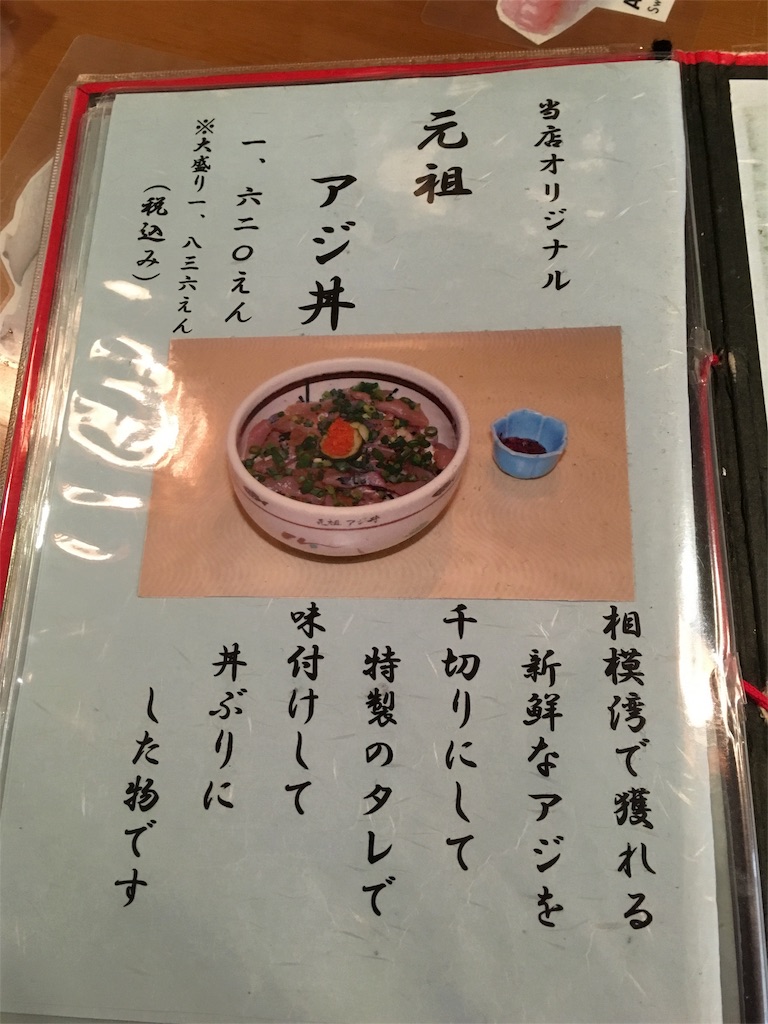 当店オリジナル
元祖
アジ丼
一、六二〇えん
※大盛り一、八三六えん
（税込み）
元祖 アジ丼
相模湾で獲れる
新鮮なアジを
千切りにして
特製のタレで
味付けして
丼ぶりに
した物です